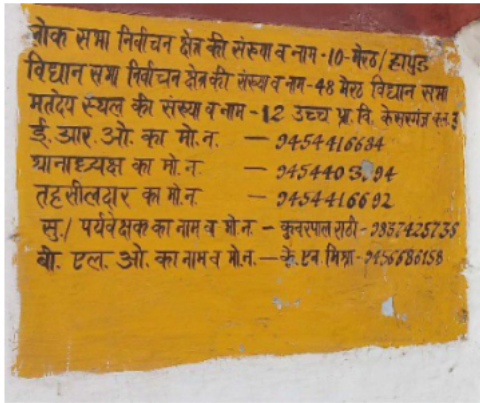 लोक सभा निर्वाचन क्षेत्र की संख्या व नाम - 10 - मेरठ / हापुड
विधान सभा निर्वाचन क्षेत्र की संख्या व नाम - 48 मेरठ विधान सभा
मतदेय स्थल की संख्या व नाम - 12 उच्च प्रा. वि. केसरगंज
ई. आर. ओ. का मो. न. - 9454416684
थानाध्यक्ष का मो. न.
तहसीलदार का मो. न - 9454416692
सु./ पर्यवेक्षक का नाम व मो. न. - कुवरपाल राठी - 9837425735
बी. एल. ओ. का नाम व मो. न. - के. एन मिश्रा - 9456686158